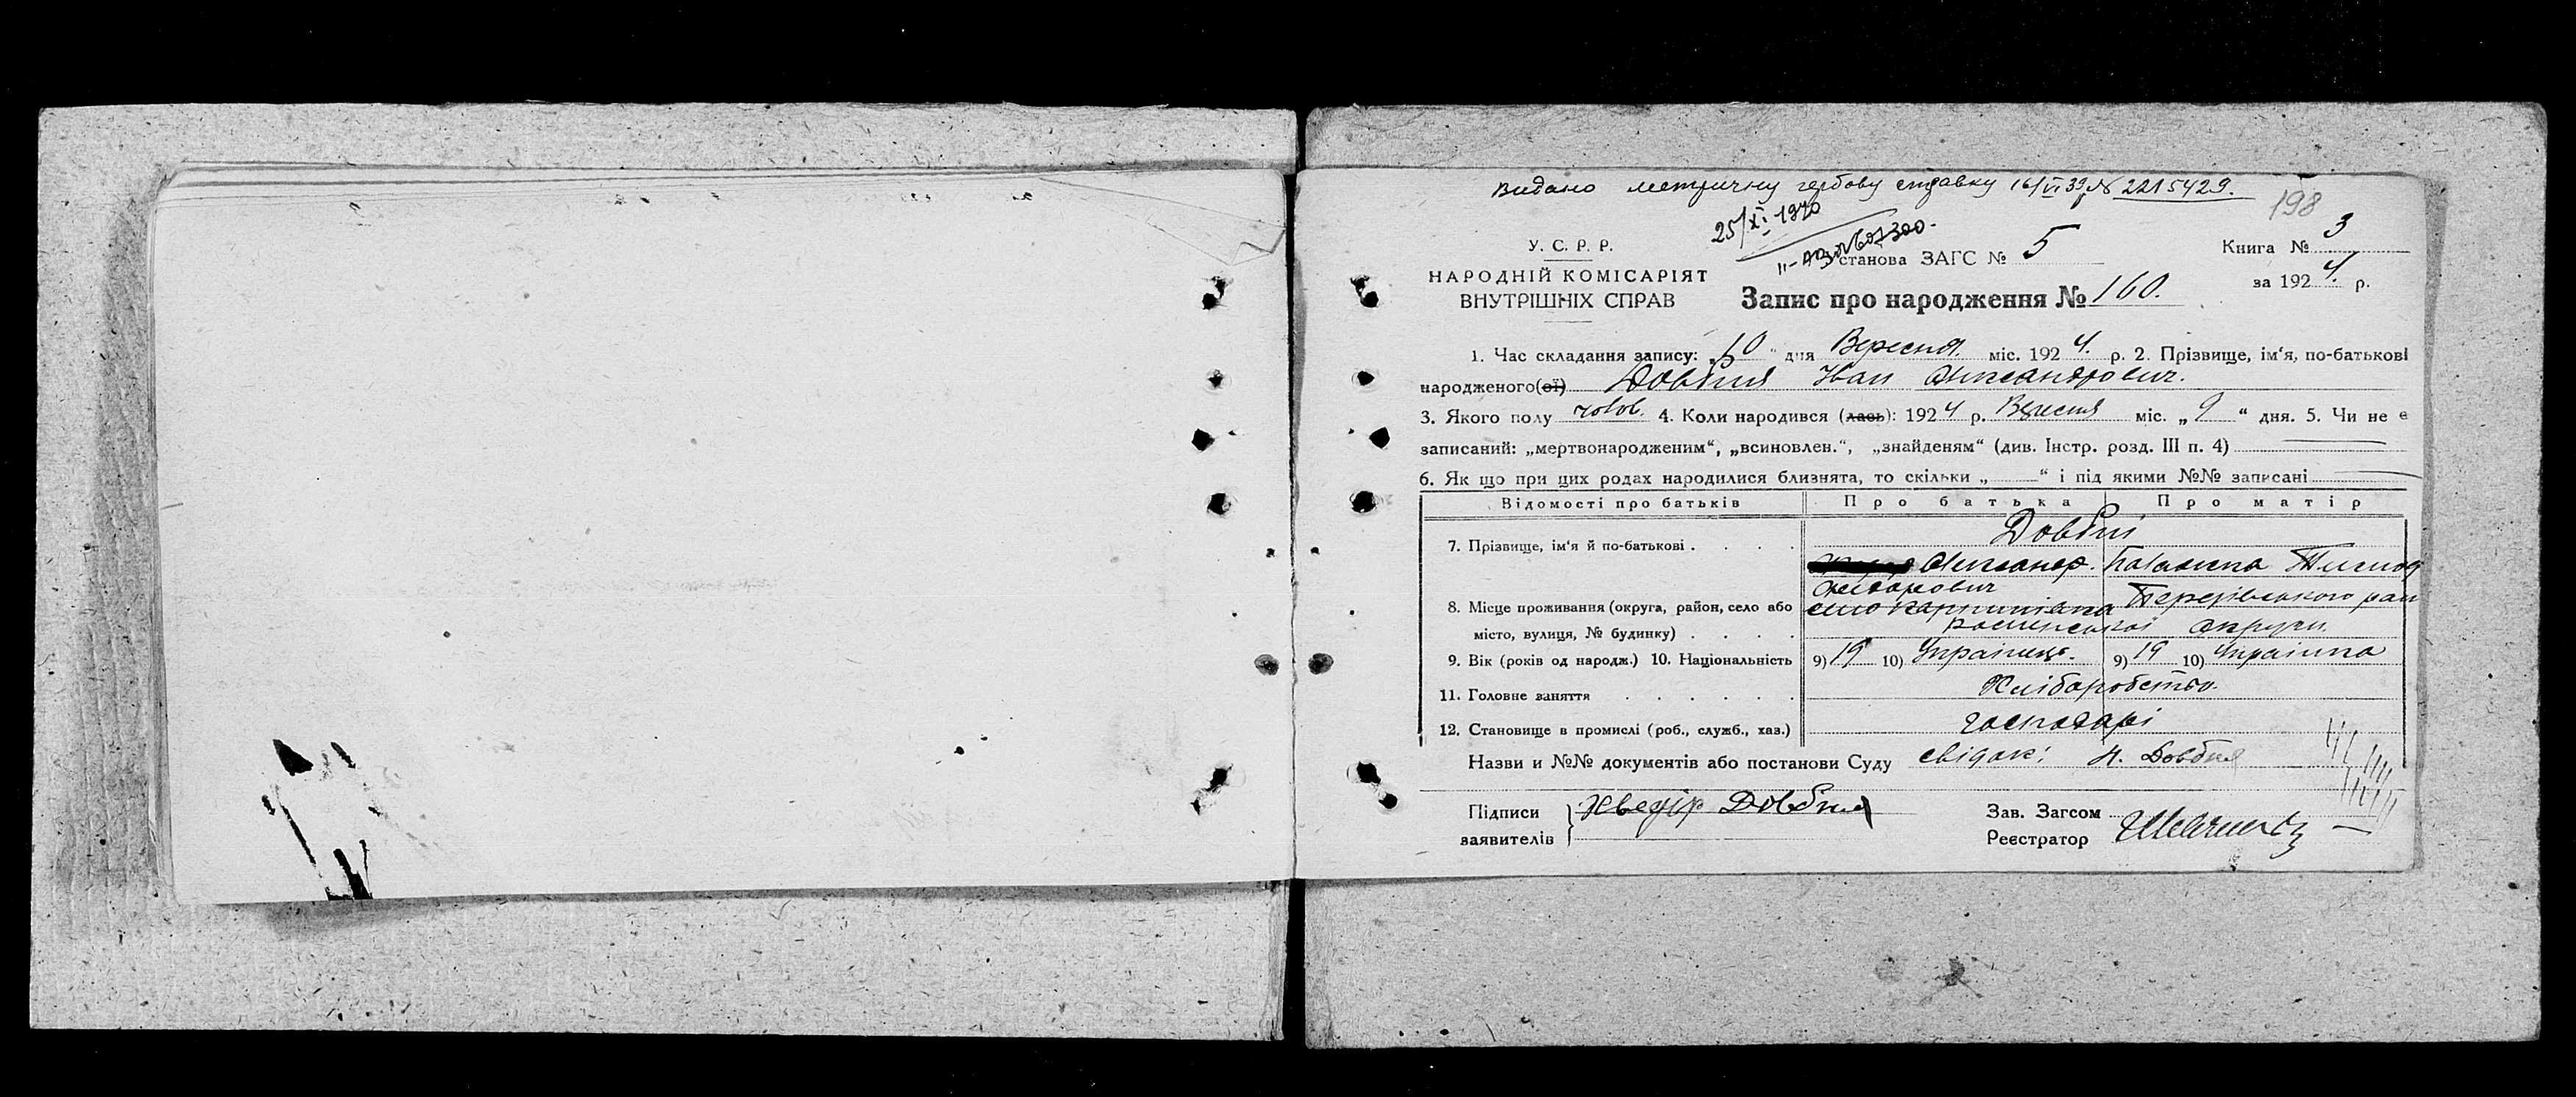 Видано метричну гербову справку 16/VI 39 № 2215429.
198
25/XI 1940
У. С. Р. Р.
станова ЗАГС № 5
Книга № 3
НАРОДНІЙ КОМІСАРІЯТ
ВНУТРІШНІХ СПРАВ
Запис про народження № 160.
за 1924 р.
1. Час складання запису: „10“ дня Вересня міс. 1924. р. 2. Прізвище, ім'я, по-батькові
народженого(ої) Довбня Іван Олександрович.
3. Якого полу чолов. 4. Коли народився (лась): 1924 р. Вересня міс. „9“ дня. 5. Чи не є
записаний: „мертвонародженим“, „всиновлен.“, „знайденям“ (див. Інстр. розд. III п. 4)
6. Як що при цих родах народилися близнята, то скільки „ “ і під якими №№ записані
Відомості про батьків Про батька Про матір
7. Прізвище, ім'я й по-батькові . . . . Довбні
Олександр.
8. Місце проживання (округа, район, село або
місто, вулиця, № будинку) . . . . Роменської округи
9. Вік (років од народж.) 10. Національність 9) 19 10) Українець. 9) 19 10) Українка
11. Головне заняття . . . . . . Хліборобство.
12. Становище в промислі (роб., служб., хаз.) господарі
Назви и №№ документів або постанови Суду свідок: Н. Довбня
Підписи
заявителів
Хведір Довбня
Зав. Загсом
Реєстратор